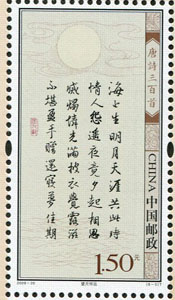 唐詩三百首
海上生明月天涯共此時
情人怨遙夜竟夕起相思
滅燭憐光滿披衣覺露滋
不堪盈手贈還寢夢佳期
CHINA 中国邮政
1.50元
2009-20
望月怀远